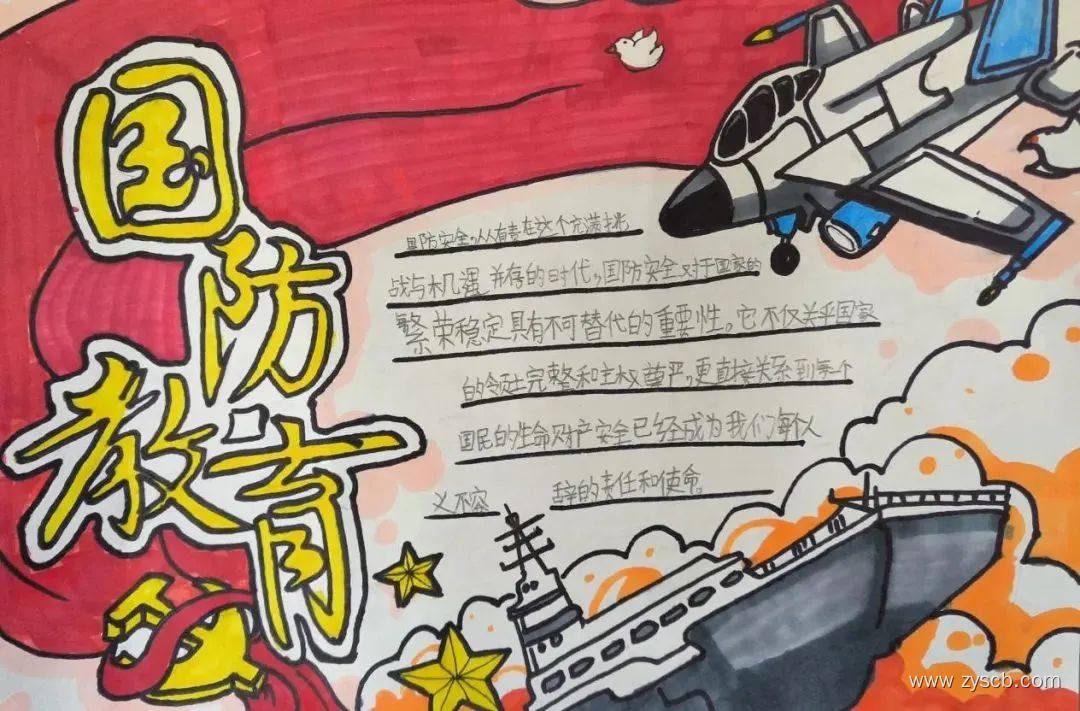 国防教育
国防安全,人人有责在这个充满挑
战与机遇并存的时代,国防安全对于国家的
繁荣稳定具有不可替代的重要性。它不仅关乎国家
的领土完整和主权尊严,更直接关系到每个
国民的生命财产安全已经成为我们每个人
义不容 辞的责任和使命。
www.zyscb.com